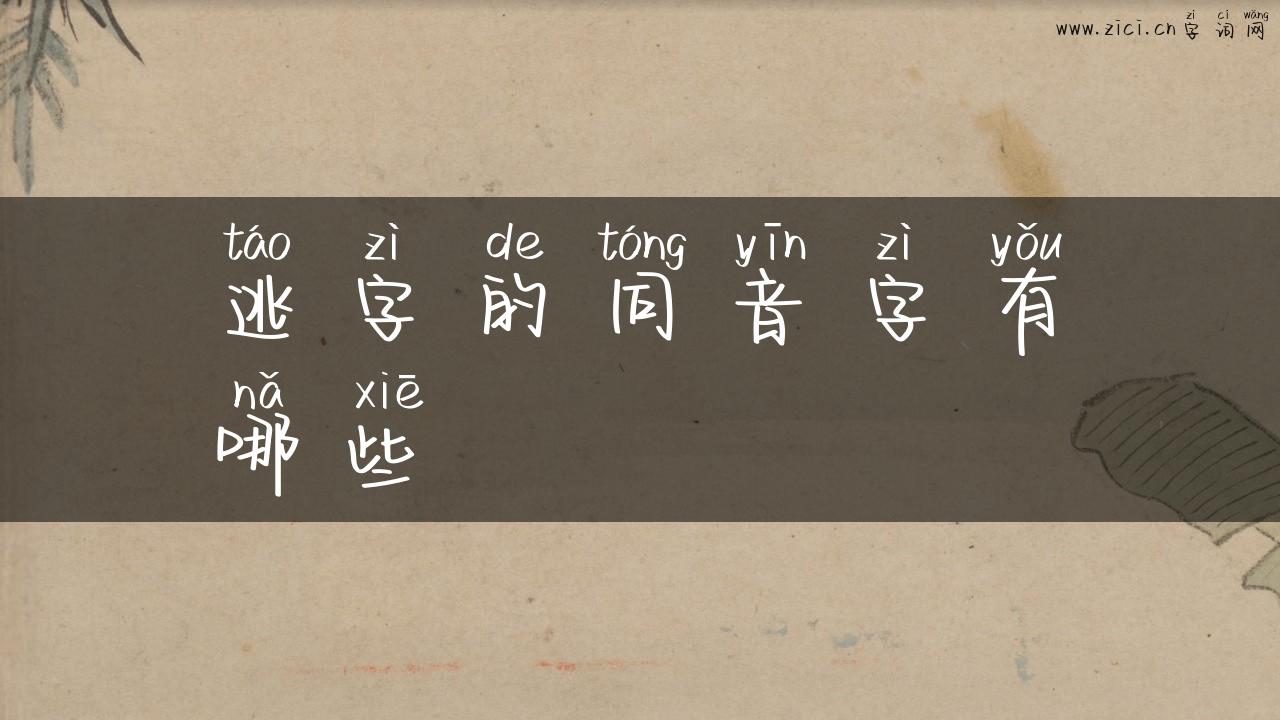 zì cí wǎng
www.zici.cn 字 词 网
táo zì de tóng yīn zì yǒu
逃 字 的 同 音 字 有
nǎ xiē
哪 些